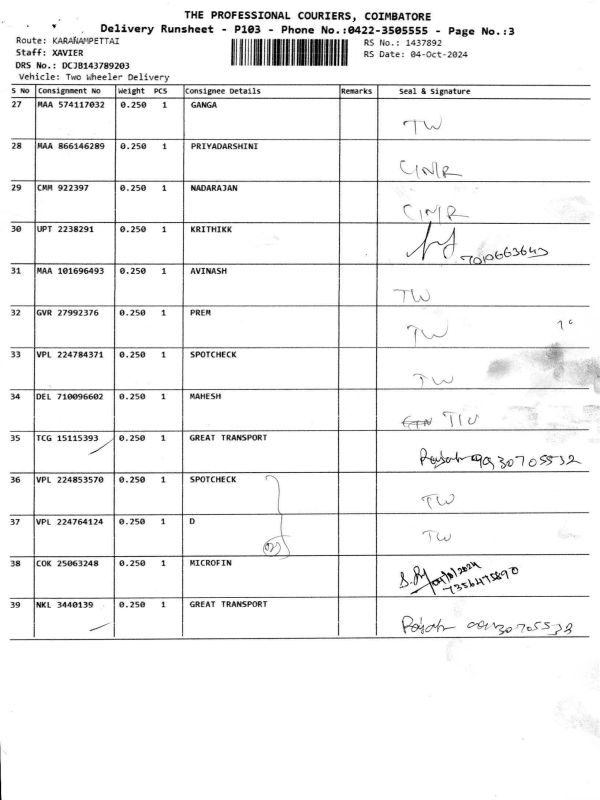 THE PROFESSIONAL COURIERS, COIMBATORE
Delivery Runsheet - P103 - Phone No.:0422-3505555 - Page No.:3
Route: KARANAMPETTAI RS No.: 1437892
Staff: XAVIER RS Date: 04-Oct-2024
DRS No.: DCJB143789203
Vehicle: Two Wheeler Delivery
S No Consignment No Weight PCS Consignee Details Remarks Seal & Signature
27 MAA 574117032 0.250 1 GANGA
TW
28 MAA 866146289 0.250 1 PRIYADARSHINI
CINR
29 CMM 922397 0.250 1 NADARAJAN
CINR
30 UPT 2238291 0.250 1 KRITHIKK
7010663643
31 MAA 101696493 0.250 1 AVINASH
TW
32 GVR 27992376 0.250 1 PREM
TW
33 VPL 224784371 0.250 1 SPOTCHECK
TW
34 DEL 710096602 0.250 1 MAHESH
TW
35 TCG 15115393 0.250 1 GREAT TRANSPORT
36 VPL 224853570 0.250 1 SPOTCHECK
TW
37 VPL 224764124 0.250 1 D
TW
38 COK 25063248 0.250 1 MICROFIN
7356475890
39 NKL 3440139 0.250 1 GREAT TRANSPORT